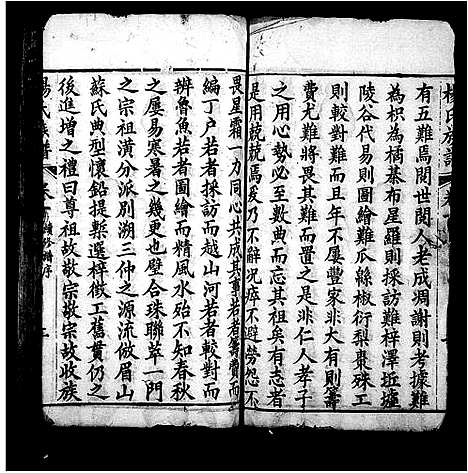 楊氏族譜
有五難焉閱世閱人老成凋謝則考據難
為枳為橘棊布星羅則採訪難梓澤坵墟
陵谷代易則圖繪難瓜緜椒衍梨棗殊工
則較對難而且年不屢豐家非大有則籌
費尤難將畏其難而置之是非仁人孝子
之用心勢必至數典而忘其祖矣有志者
是用兢兢焉爰乃不辭况瘁不避勞怨不
畏星霜一力同心共成其事若者籌費而
編丁户若者採訪而越山河若者較對而
辨魯魚若者圖繪而精風水殆不知春秋
之屢易寒暑之幾更也壁合珠聯萃一門
之宗祖潢分派別溯三仲之源流倣眉山
蘇氏典型懷鉛提槧選梓徴工舊貫仍之
後進增之禮曰尊祖故敬宗敬宗故收族
楊氏族譜 卷 續修譜序 二